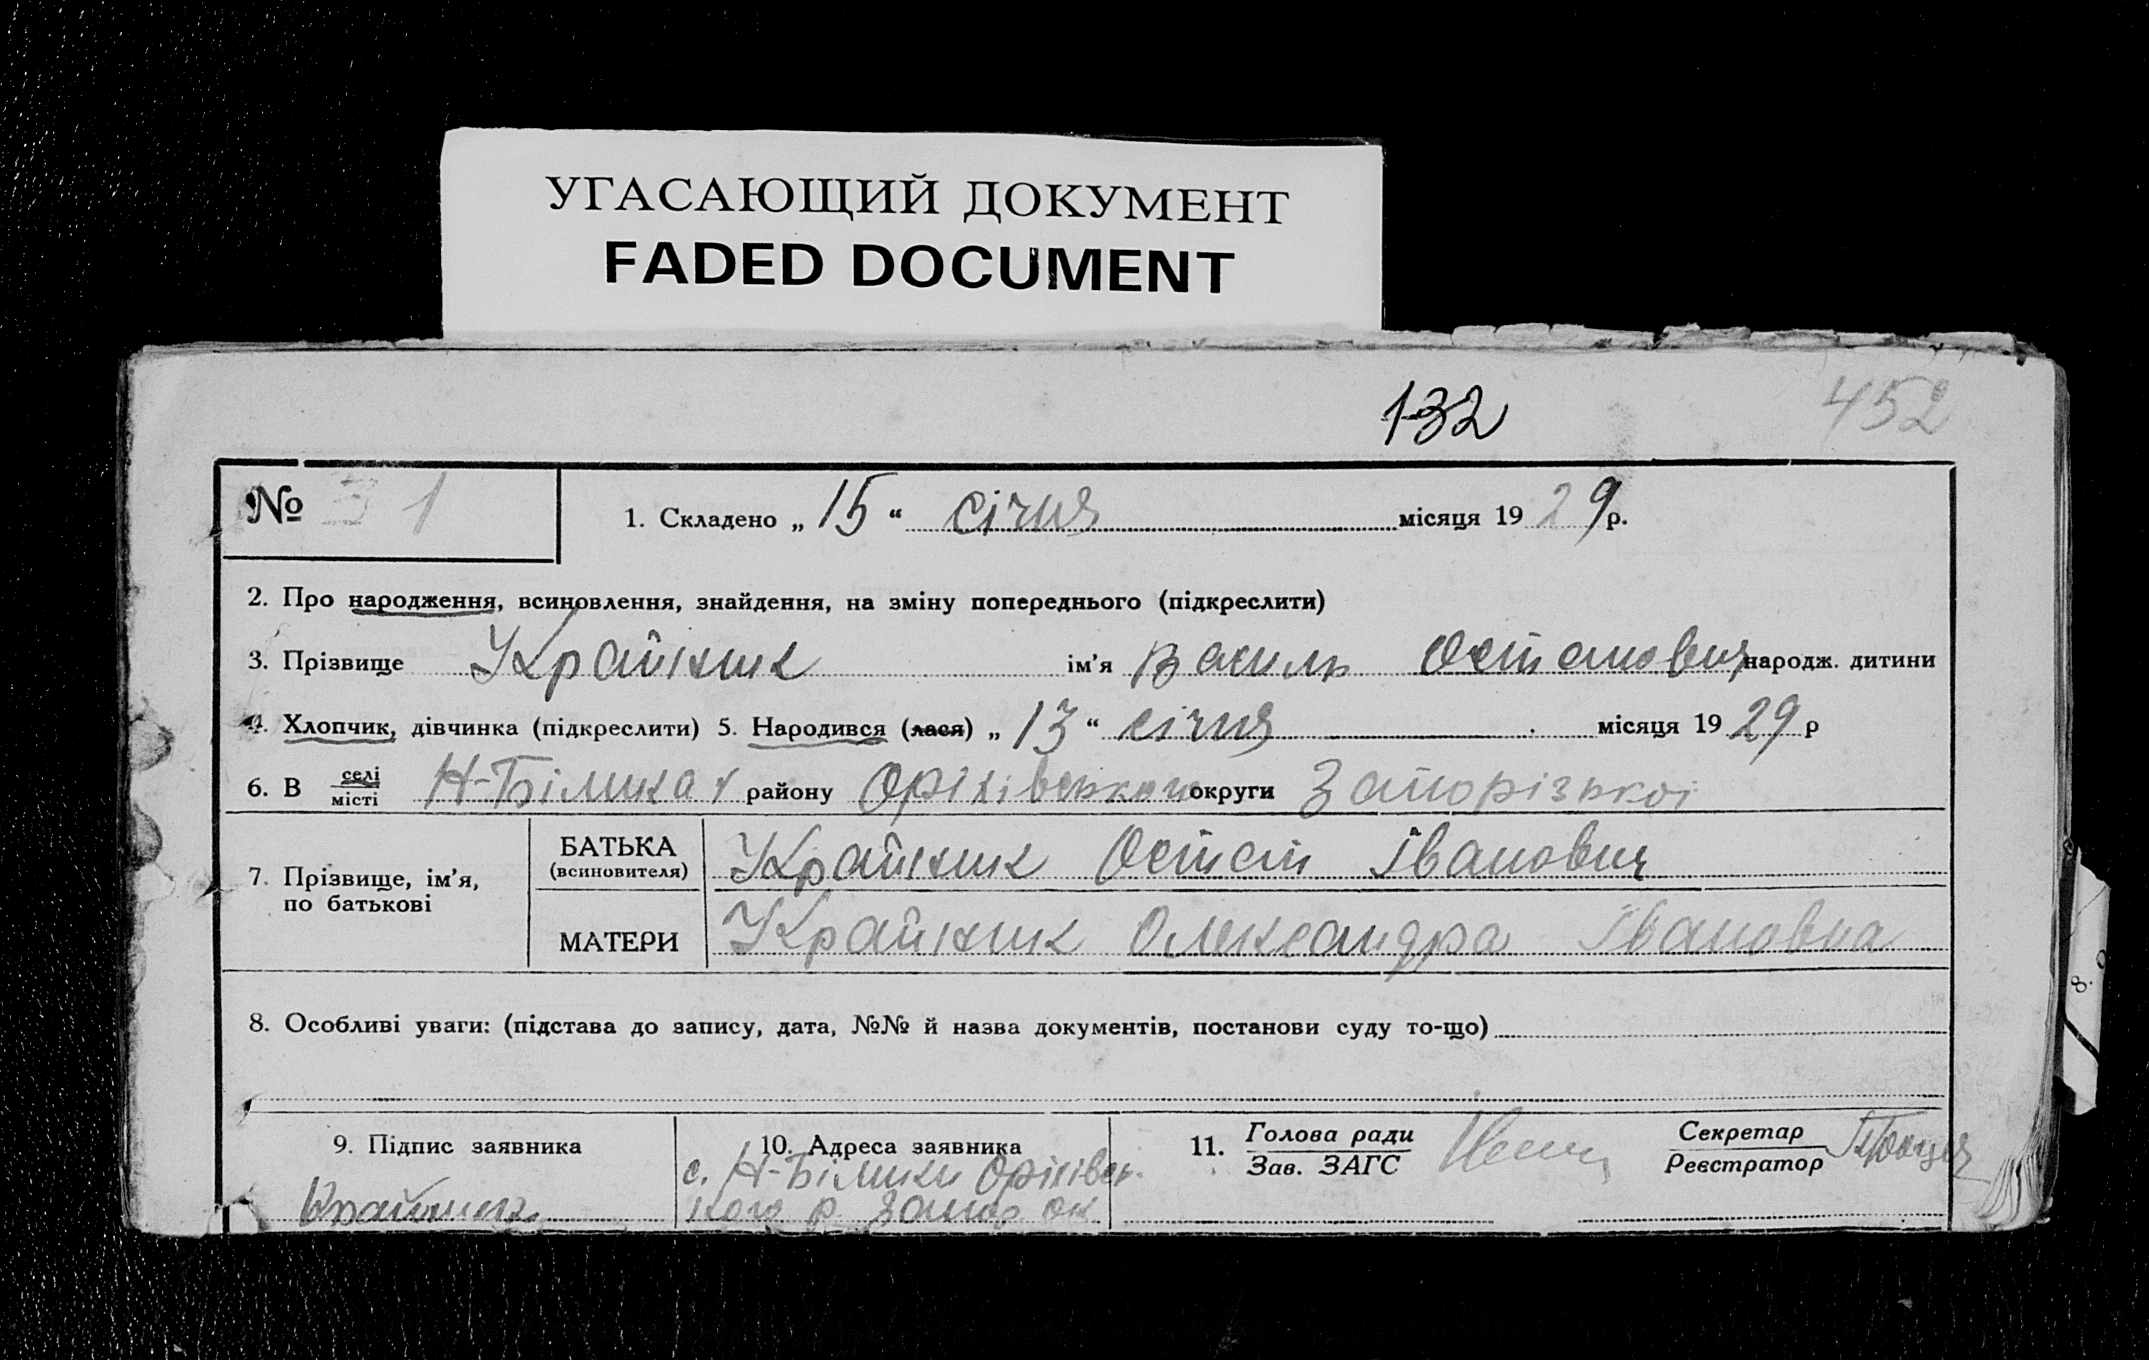 УГАСАЮЩИЙ ДОКУМЕНТ
FADED DOCUMENT
132
452
№ 31
1. Складено „ 15 “ січня місяця 19 29 р.
2. Про народження, всиновлення, знайдення, на зміну попереднього (підкреслити)
3. Прізвище Крайник ім’я Василь Остапович народж. дитини
4. Хлопчик, дівчинка (підкреслити) 5. Народився (лася) „ 13 “ січня місяця 19 29 р
6. В селі місті Н-Біликах району Оріхівського округи Запорізької
7. Прізвище, ім’я, по батькові
БАТЬКА (всиновителя) Крайник Остап Іванович
МАТЕРИ Крайник Олександра Івановна
8. Особливі уваги: (підстава до запису, дата, №№ й назва документів, постанови суду то-що)
9. Підпис заявника
Крайник
10. Адреса заявника
с. Н-Білики Оріхівсь-
кого р. Запор ок
11. Голова ради
Зав. ЗАГС
Секретар
Реєстратор
8.